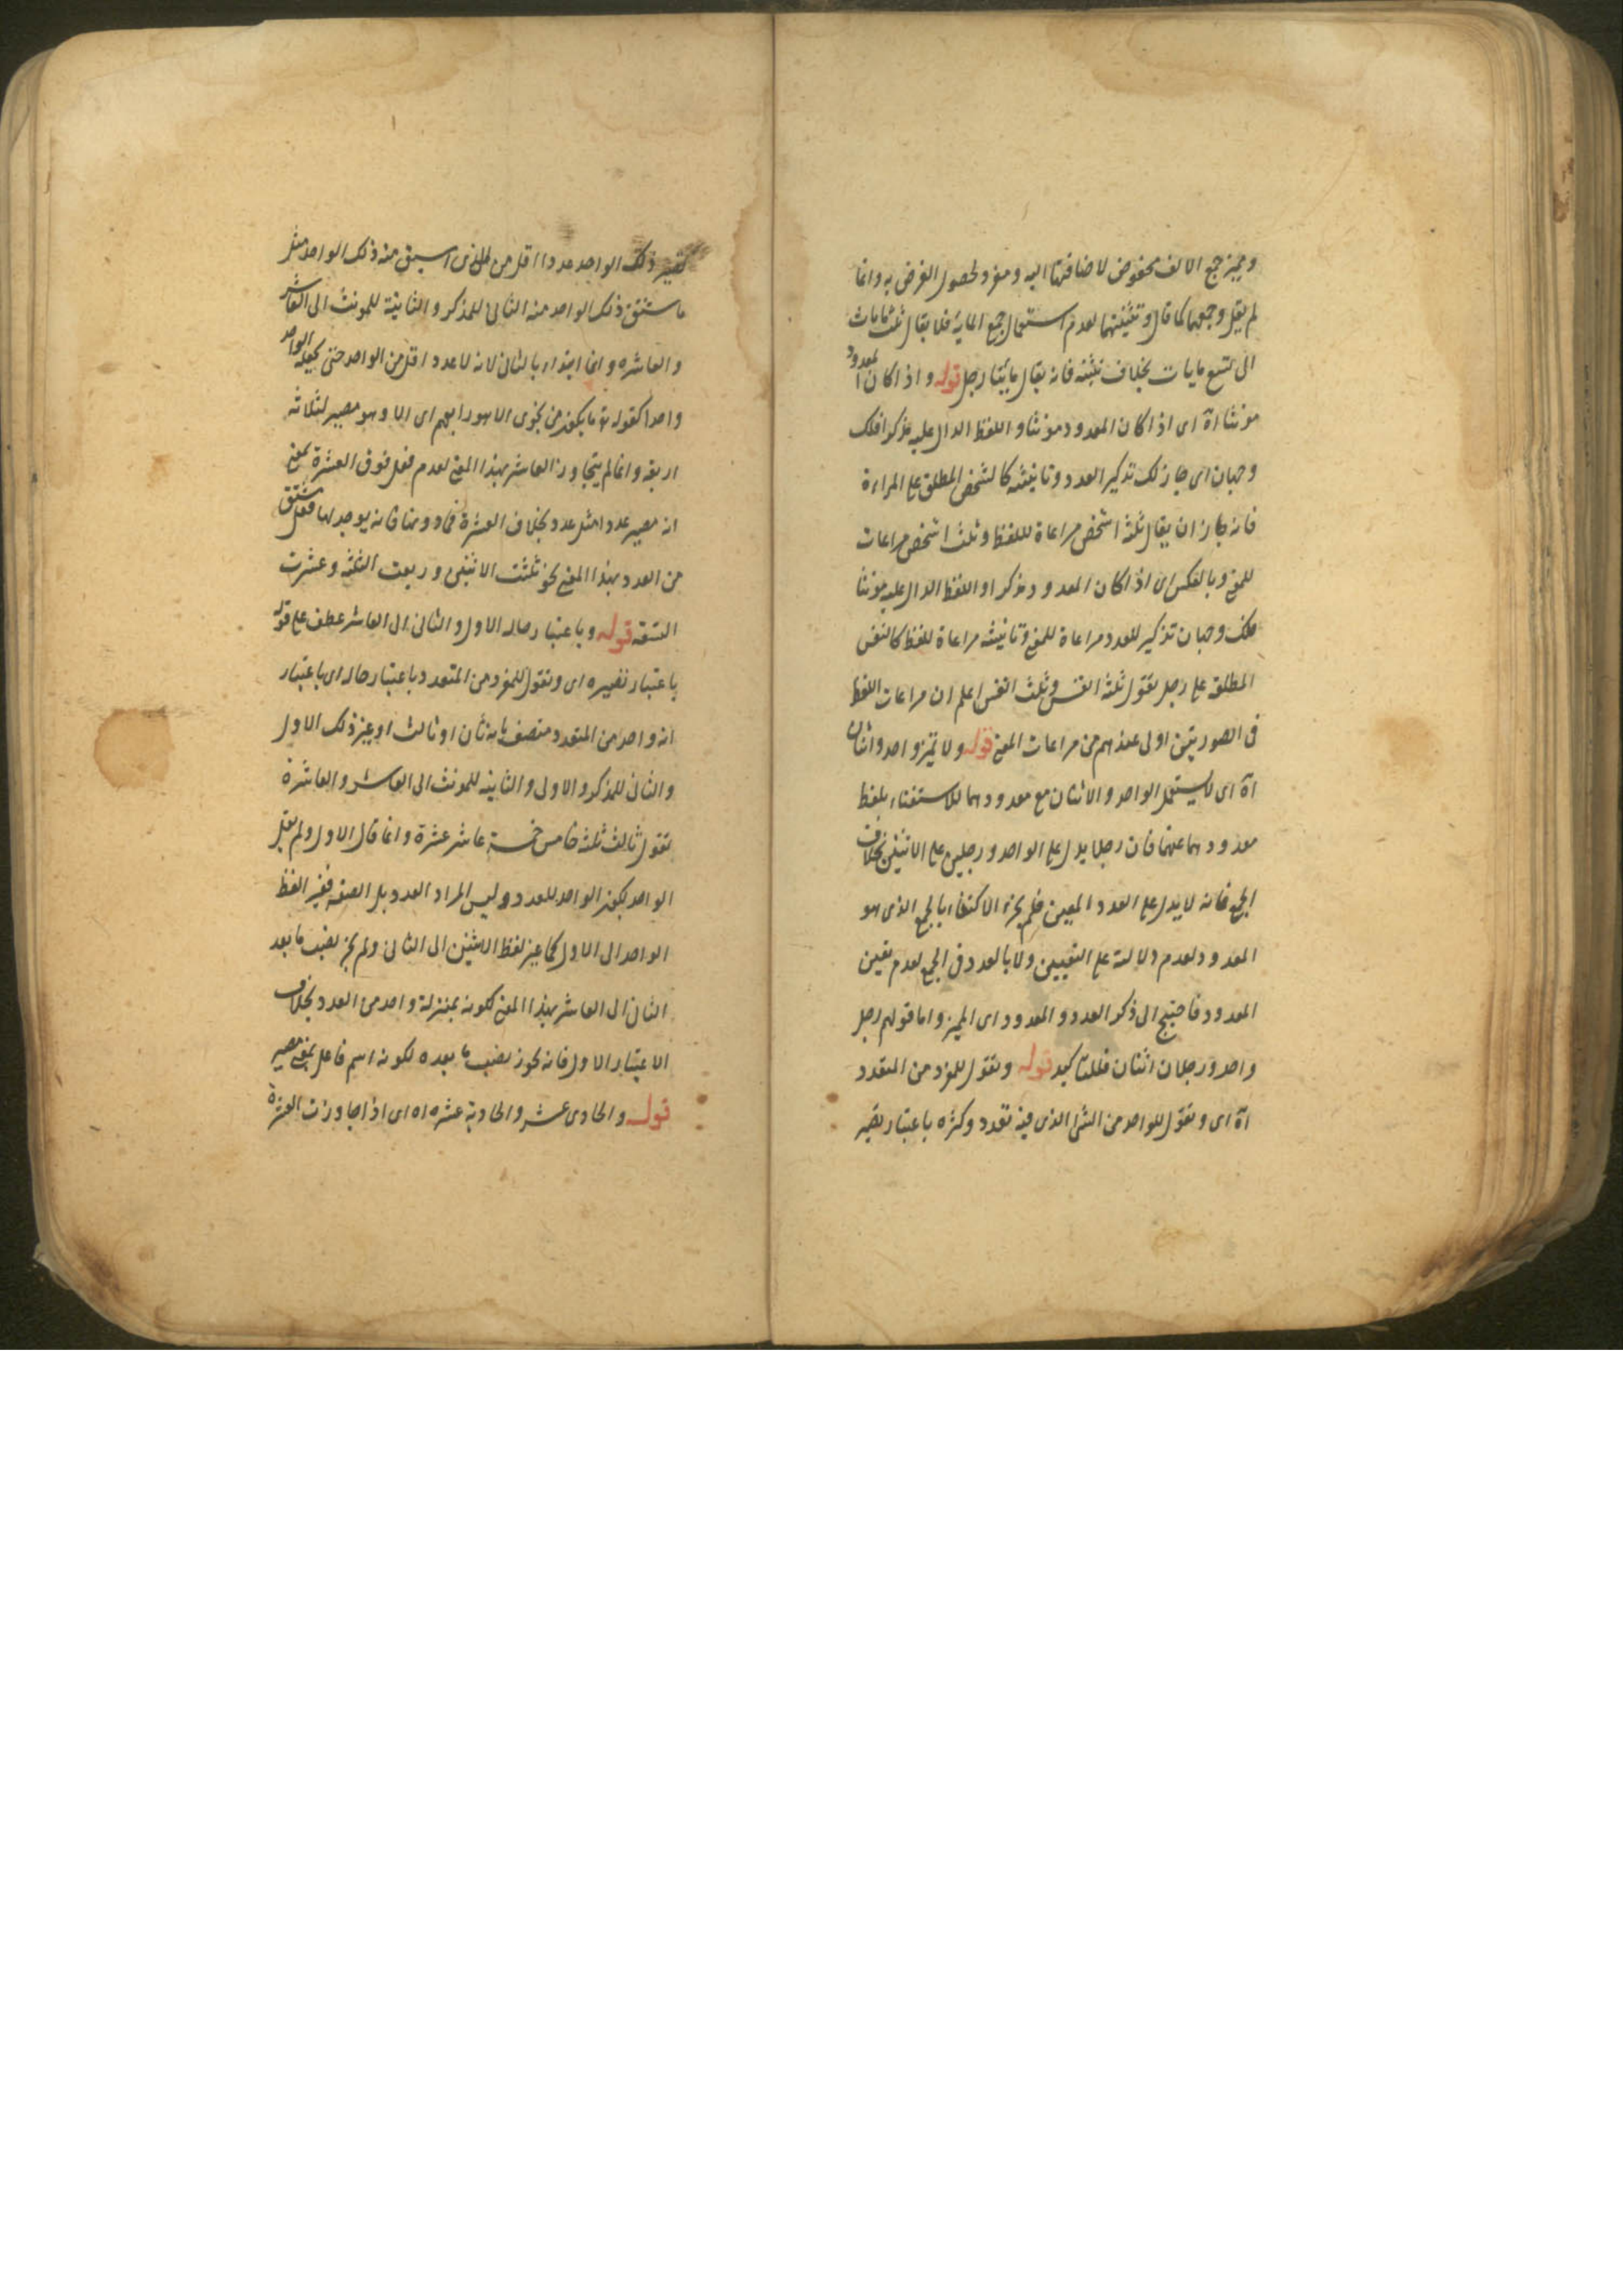 ومميز جمع الالف مخفوض لاضافتها اليه ومفرد لحصول الغرض به وانما
لم يقل وجمعهما كما قال وتثنيتهما لعدم استعمال جمع الماية فلا يقال ثلث مايات
الى تسع مايات بخلاف تثنيته فانه يقال مايتا رجل قوله واذا كان المعدود
مونثا آه اى اذا كان المعدود مونثا واللفظ الدال عليه مذكرا فلك
وجهان اى جاز لك تذكير العدد وتانيثه كالشخص المطلق على المراءة
فانه جاز ان يقال ثلثة اشخص مراعاة للفظ وثلث اشخص مراعات
للمعنى وبالعكس اى اذا كان المعدود مذكرا واللفظ الدال عليه مونثا
فلك وجهان تذكير للعدد مراعاة للمعنى وتانيثه مراعاة للفظ كالنفس
المطلقة على رجل تقول ثلثة انفس وثلث انفس اعلم ان مراعات اللفظ
فى الصورتين اولى عندهم من مراعات المعنى قوله ولا تميز واحد واثنان
آه اى لا يستعمل الواحد والاثنان مع معدودهما للاستغناء بلفظ
معدودهما عنهما فان رجلا يدل على الواحد ورجلين على الاثنين بخلاف
الجمع فانه لا يدل على العدد المعين فلم يجز الاكتفاء بالجمع الذى هو
المعدود لعدم دلالته على التعيين ولا بالعدد فى الجمع لعدم تعين
المعدود فاحتيج الى ذكر العدد والمعدود اى المميز واما قولهم رجل
واحد ورجلان اثنان فللتاكيد قوله وتقول للمفرد من المتعدد
آه اى وتقول للواحد من الشئ الذى فيه تعدد وكثرة باعتبار تصيير
تصيير ذلك الواحد عددا اقل من الذى اشتق منه ذلك الواحد مثل
ما اشتق ذلك الواحد منه الثانى للمذكر والثانية للمونث الى العاشر
والعاشره وانما ابتداء بالثانى لانه لا عدد اقل من الواحد حتى يجعله الواحد
واحدا كقوله تع ما يكون من نجوى الا هو رابعهم اى الا وهو مصير لثلاثة
اربعة وانما لم يتجاوز العاشر بهذا المعنى لعدم فعل فوق العشرة بمعنى
انه مصير عددا مثل عدد بخلاف العشرة فما دونها فانه يوجد لها فعل مشتق
من العدد بهذا المعنى نحو ثلثت الاثنين وربعت الثلثة وعشرت
التسعة قوله وباعتبار حاله الاول والثانى الى العاشر عطف على قوله
باعتبار تصييره اى وتقول للمفرد من المتعدد باعتبار حاله اى باعتبار
انه واحد من المتعدد متصف بانه ثان او ثالث او غير ذلك الاول
والثانى للمذكر والاولى والثانية للمونث الى العاشر والعاشرة
تقول ثالث ثلثة خامس خمسة عاشر عشرة وانما قال الاول ولم يقل
الواحد لكون الواحد للعدد وليس المراد العدد بل الصفة فغير لفظ
الواحد الى الاول كما غير لفظ الاثنين الى الثانى ولم يجز نصب ما بعد
الثانى الى العاشر بهذا المعنى لكونه بمنزلة واحد من العدد بخلاف
الاعتبار الاول فانه يجوز نصب ما بعده لكونه اسم فاعل بمعنى مصير
قوله والحادى عشر والحادية عشره اه اى اذا جاوزت العشرة